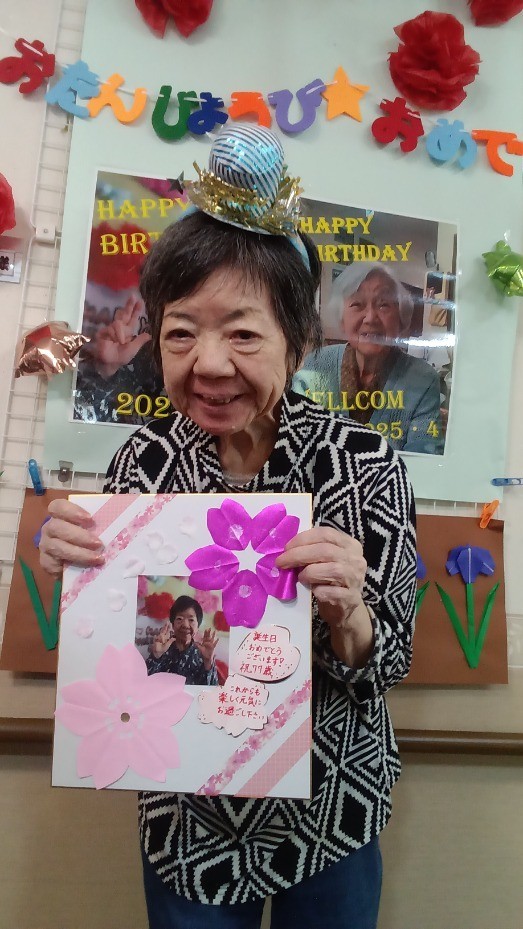 おたんじょうび★おめで
HAPPY
BIRT
202
HAPPY
BIRTHDAY
WELLCOM
2025・4
誕生日
おめでとう
ございます♡
祝77歳
これからも
楽しく元気に
お過ごし下さい